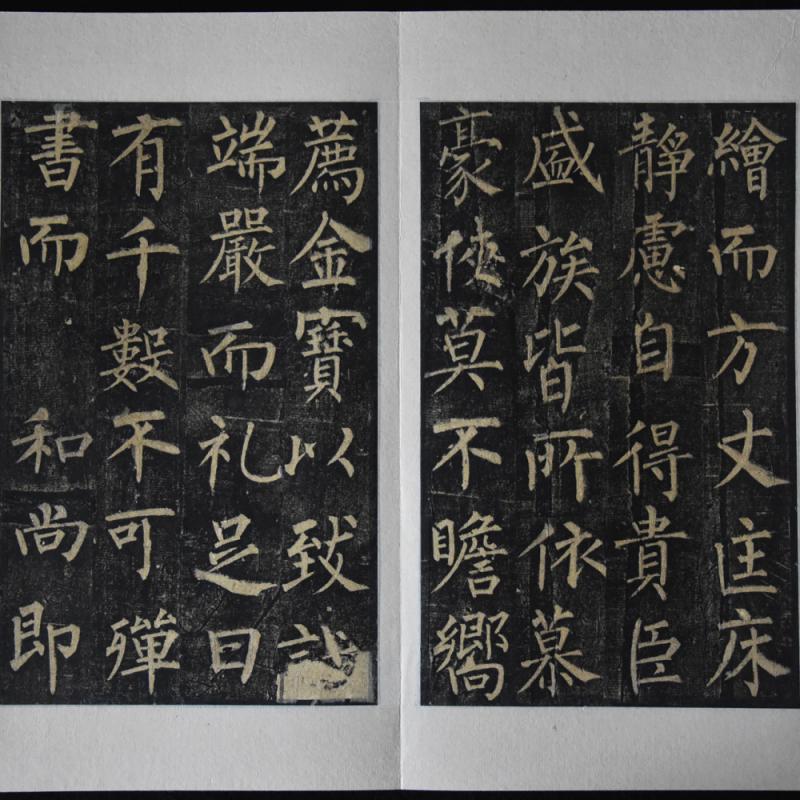 繪而方丈匡床
靜慮自得貴臣
盛族皆所依慕
豪俠莫不瞻嚮
薦金寶以致
端嚴而礼足日
有千數不可殫
書而 和尚即